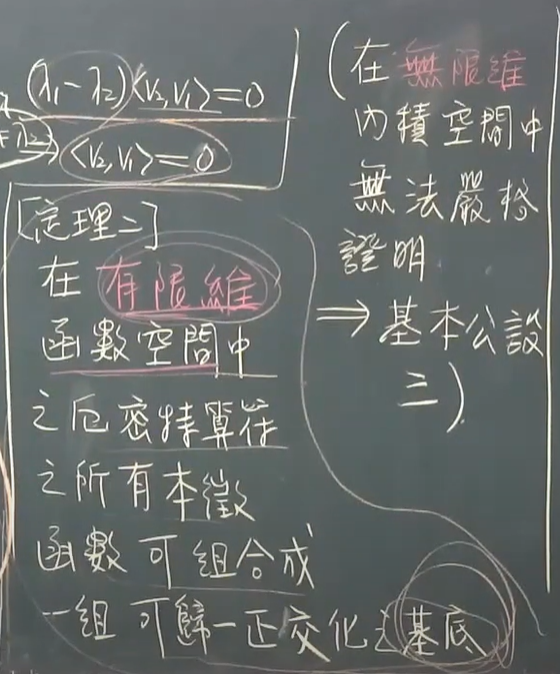 (λ₁-λ₂)<v₂,v₁>=0
<v₂,v₁>=0
[定理二]
在有限維
函數空間中
之厄密特算符
之所有本徵
函數可組合成
一組可歸一正交化之基底
(在無限維
內積空間中
無法嚴格
證明
⇒基本公設
三)